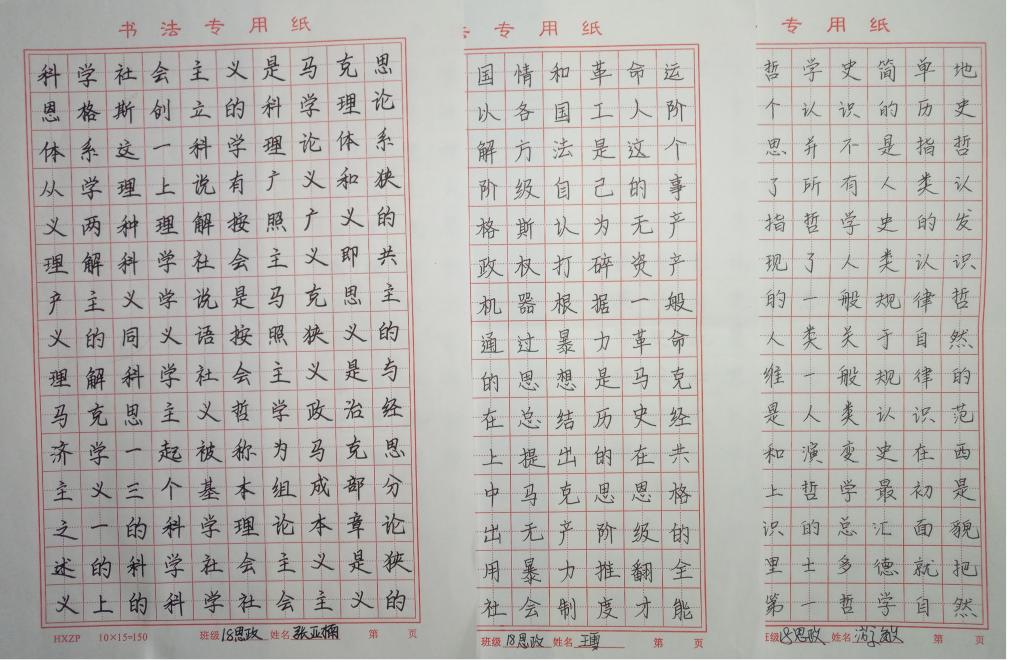 书法专用纸
科学社会主义是马克思
恩格斯创立的科学理论
体系这一科学理论体系
从学理上说有广义和狭
义两种理解按照广义的
理解科学社会主义即共
产主义学说是马克思主
义的同义语按照狭义的
理解科学社会主义是与
马克思主义哲学政治经
济学一起被称为马克思
主义三个基本组成部分
之一的科学理论本章论
述的科学社会主义是狭
义上的科学社会主义的
HXZP 10×15=150 班级 18思政 姓名 张亚楠 第 页
专用纸
国情和革命运
以各国工人阶
解方法是这个
阶级自己的事
格斯认为无产
政权打碎资产
机器根据一般
通过暴力革命
的思想是马克
在总结历史经
上提出的在共
中马克思恩格
出无产阶级的
用暴力推翻全
社会制度才能
班级 18思政 姓名 第 页
专用纸
哲学史简单地
个认识的历史
思并不是指哲
了所有人类认
指哲学史的发
现了人类认识
的一般规律哲
人类关于自然
维一般规律的
是人类认识范
和演变史在西
上哲学最初是
识的总汇面貌
里士多德就把
第一哲学自然
18思政 姓名 第 页